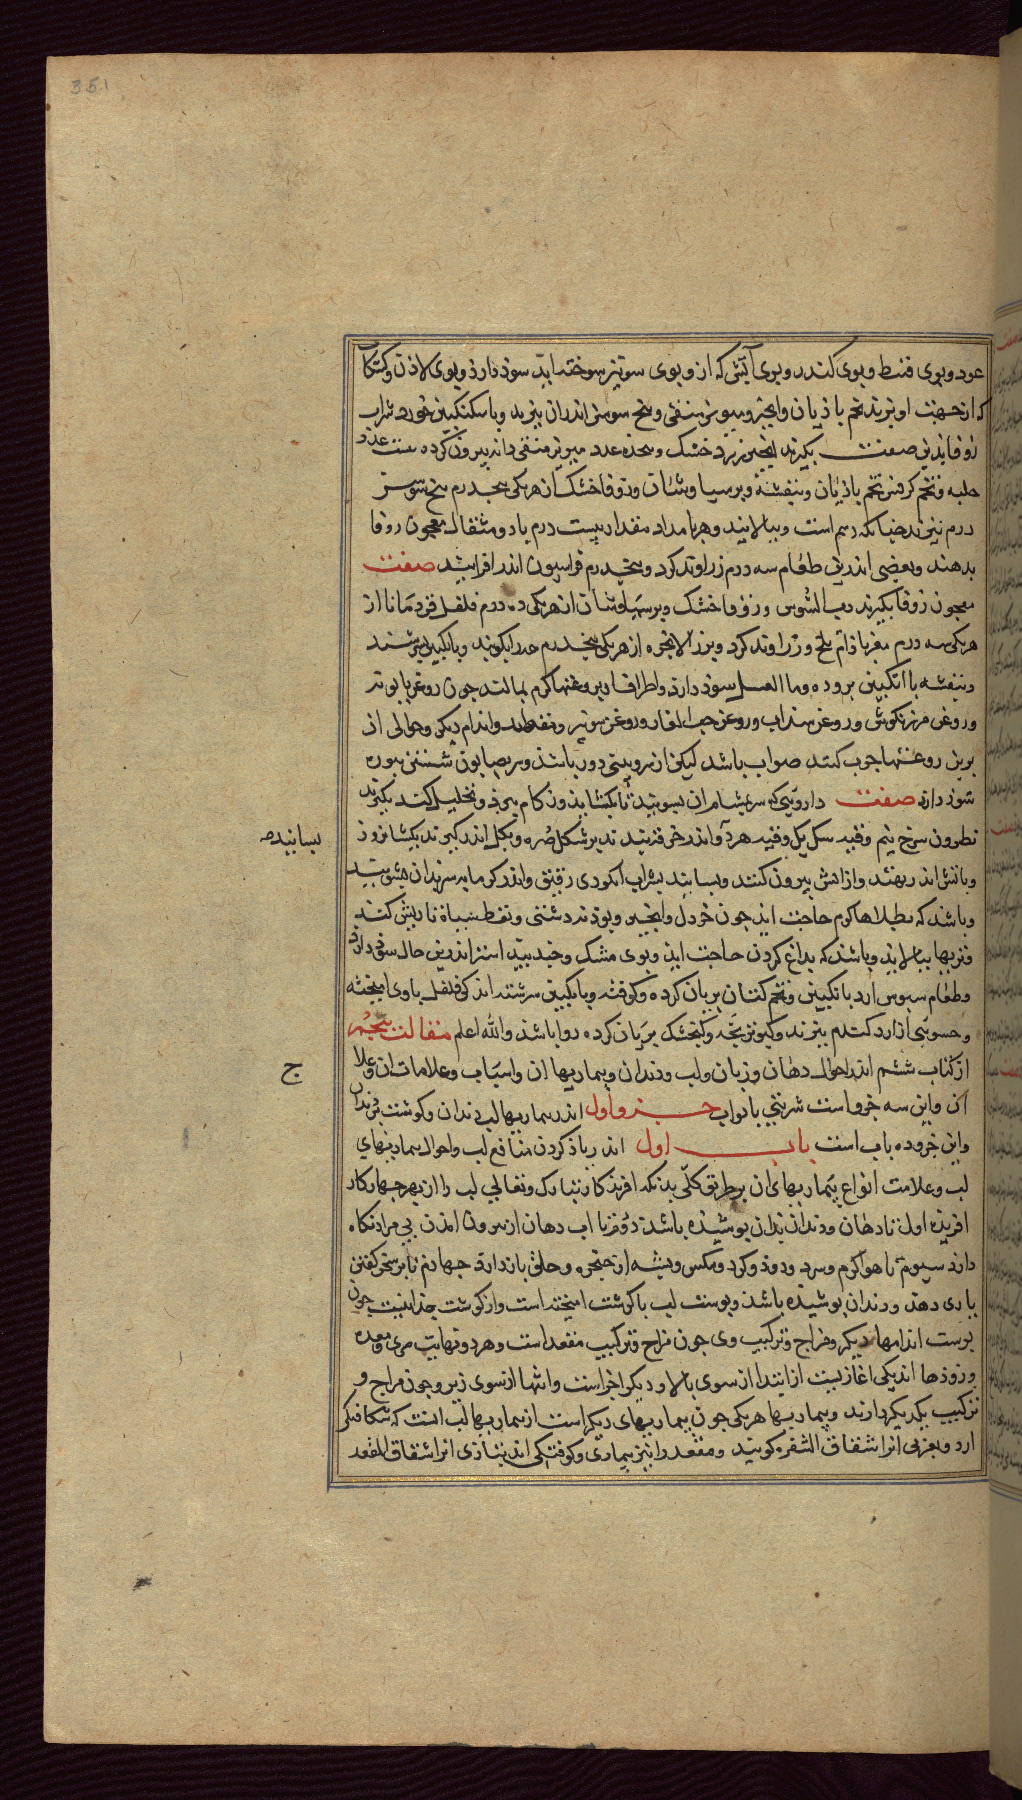 351
عود و بوی قسط و بوی کندر و بوی آتش که از و بوی سونیز سوخته اید سود دارد و بوی لادن و کشکاب
که از جهت او پزند تخم باذیان و انجیر و میویز منقی و بیخ سوس اندران بپزند و با سکنکبین خورد شراب
زوفا بذین صفت بکیرند انجیر زرد خشک و عدد میویز منقی دانه بیرون کرده بیست عدد
حلبه و تخم کرفس و تخم باذیان و بنفشه و پرسیاوشان و زوفا خشک از هریکی پنجدرم بیخ سوس
درم بپزند چنانکه رسم است و ببالایند و هر بامداد مقدار بیست درم با دو مثقال معجون زوفا
بدهند و بعضی اندرین طعام سه درم زراوند کرد و پنجدرم فراسیون اندر افزایند صفت
معجون زوفا بکیرند رب السوس و زوفا خشک و پرسیاوشان از هریکی ده درم فلفل قردمانا از
هریکی سه درم مغز باذام تلخ و زراوند کرد و بزر الانجره از هریکی پنجدرم بکوبند و بانکبین بسرشند
و بنفشه با انکبین پرورده و ما العسل سود دارد و اطراف را بروغنها کرم بمالند چون روغن بابونه
و روغن مرزنکوش و روغن سداب و روغن حب الغار و روغن سونیز و اندام دیکر و حوالی ان
برین روغنها چرب کنند صواب باشد لیکن از سر و بینی دور باشد و سر بصابون شستن بوره
سود دارد صفت دارویی که سر بشام ان بسوزند تا بکشاید و زکام ببرد و تحلیل کند بکیرند
نطرون سرخ نیم وقیه سک یک وقیه هر دو اندر خرقه بندند بر شکل صره و بکل اندر کیرند بکشا تروز
و باتش اندر نهند و از اتش بیرون کنند و بسایند بشراب انکوری رقیق و اندر کرمابه سر بدان بشویند
بسایند صح
و باشد که بطلاها کرم حاجت اید چون خردل و انجیر و پوذنه دشتی و نفط سیاه تا ریش کند
و تریها ببالاید و باشد که بداغ کردن حاجت اید و بوی مشک و جندبیدستر اندرین حال سود دارد
و طعام سبوس ارد بانکبین و تخم کتان بریان کرده و کوفته و بانکبین سرشته اندکی فلفل با وی امیخته
و حسوئی از ارد کندم بپزند و کبوتر بچه و کنجشک بریان کرده روا باشد والله اعلم مقالت پنجم
از کتاب ششم اندر احوال دهان و زبان و لب و دندان و بیماریها ان و اسباب و علامات ان و علاج
ج
ان و این سه جزو است مشتمل بابواب جزو اول اندر بیماریها لب و دندان و کوشت بن دندان
و این جزو ده باب است باب اول اندر یاذ کردن منافع لب و احوال بیماریهای
لب و علامت انواع بیماریهای ان بر طریق کلی بدانکه افریذکار تبارک و تعالی لب را از بهر چهار کار
افریذه اول تا دهان و دندان بدان پوشیذه باشد دوم تا اب دهان از بیرون امذن بی مراد نکاه
دارد سیوم تا هوا کرم و سرد و دود و کرد و مکس و پشه از حنجره و حلق بازدارد چهارم تا بر سخن کفتن
یاری دهد و دندان پوشیده باشد و پوست لب با کوشت امیخته است و از کوشت جذا نیست چون
پوست اندامها دیکر و مزاج و ترکیب وی چون مزاج و ترکیب مقعد است و هر دو نهایت مری و معده
و روذها اند یکی اغاز است از ابتدا از سوی بالا و دیکر اخر است و انتها از سوی زیر و چون مزاج و
ترکیب یکدیکر دارند و بیماریها هریکی چون بیماریهای دیکر است از بیماریها لب است که شکافتکی
ارد و بعربی انرا شقاق الشفه کویند و مقعد را نیز بیماری و کوفتکی اند بتازی انرا شقاق المقعد